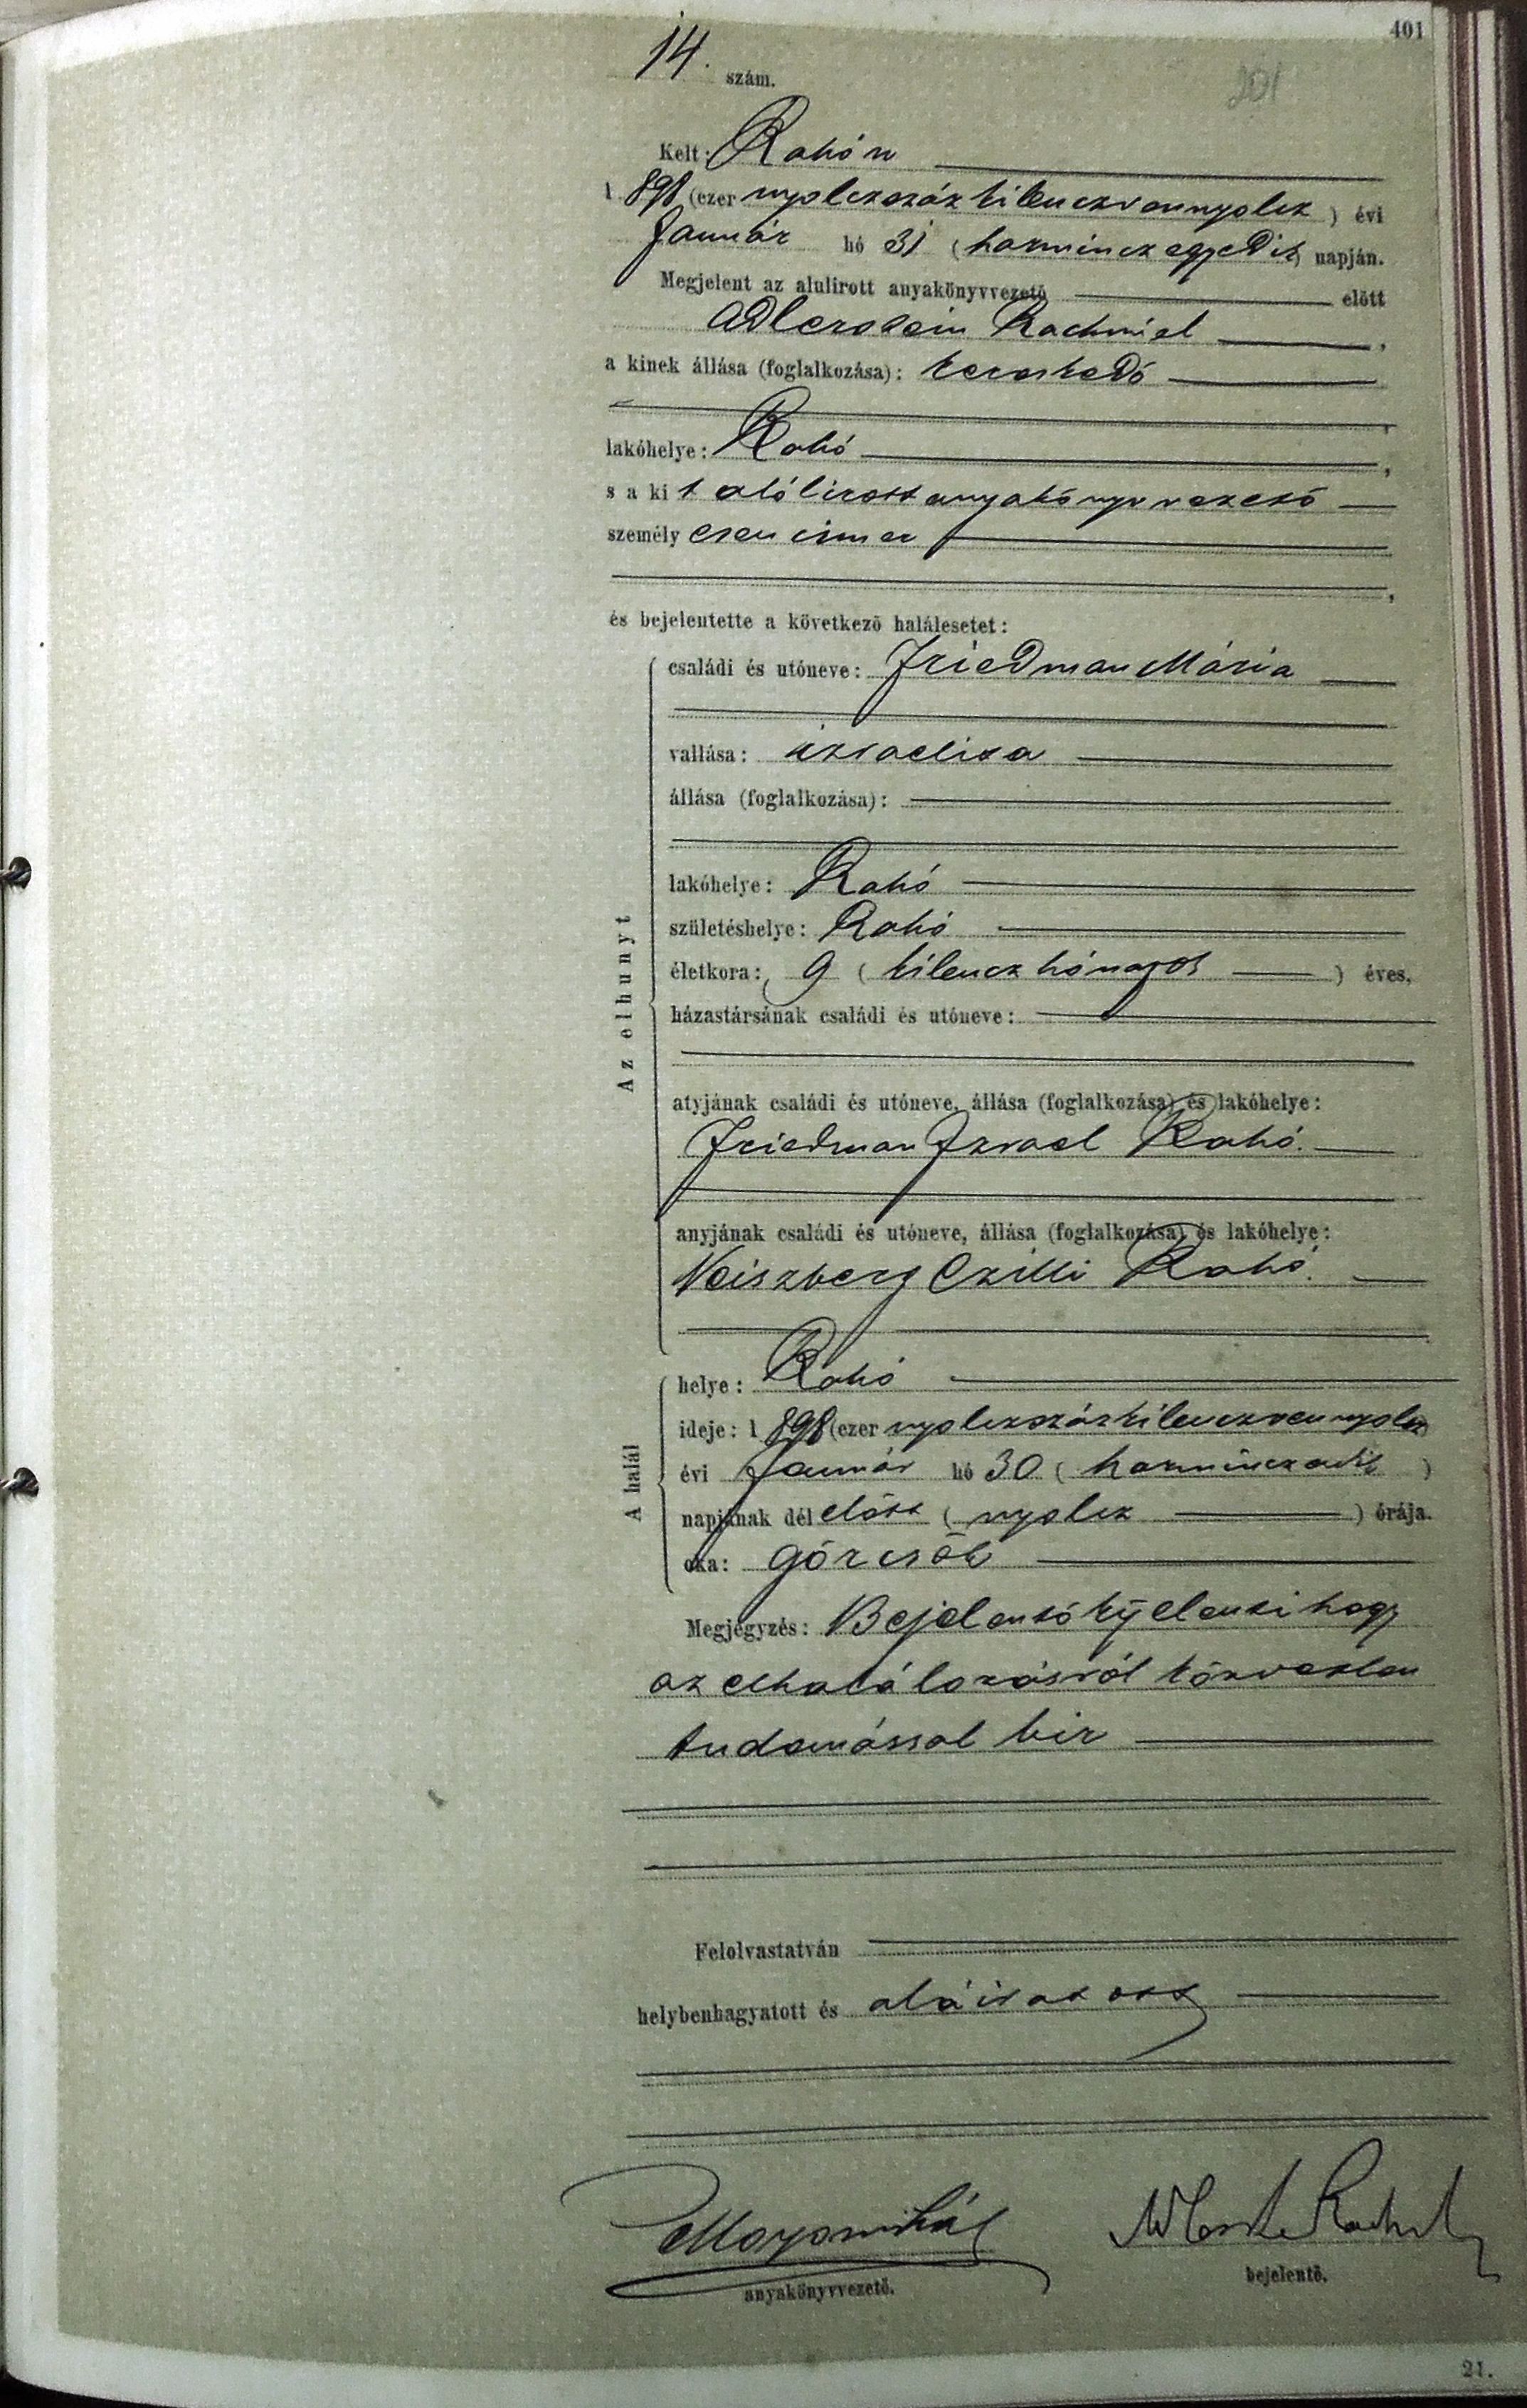 401
201
14. szám.
Kelt: Rahón
1 898 (ezer nyolczszázkilenczvennyolcz) évi
Január hó 31 (harminczegyedik) napján.
Megjelent az alulirott anyakönyvvezető előtt
Adlerstein Rachmiel,
a kinek állása (foglalkozása): kereskedő
lakóhelye: Rahó,
s a kit alólirott anyakönyvvezető
személyesen ismer,
és bejelentette a következő halálesetet:
Az elhunyt
családi és utóneve: Friedman Mária
vallása: izraelita
állása (foglalkozása):
lakóhelye: Rahó
születéshelye: Rahó
életkora: 9 (kilencz hónapos) éves,
házastársának családi és utóneve:
atyjának családi és utóneve, állása (foglalkozása) és lakóhelye:
Friedman Izrael Rahó.
anyjának családi és utóneve, állása (foglalkozása) és lakóhelye:
Veiszberg Czilli Rahó.
A halál
helye: Rahó
ideje: 1 898 (ezer nyolczszázkilenczvennyolcz)
évi Január hó 30 (harminczadik)
napjának délelőtt (nyolcz) órája.
oka: görcsök
Megjegyzés: Bejelentő kijelenti hogy
az elhalálozásról közvetlen
tudomással bir
Felolvastatván
helybenhagyatott és aláiratott
anyakönyvvezető.
bejelentő.
21.